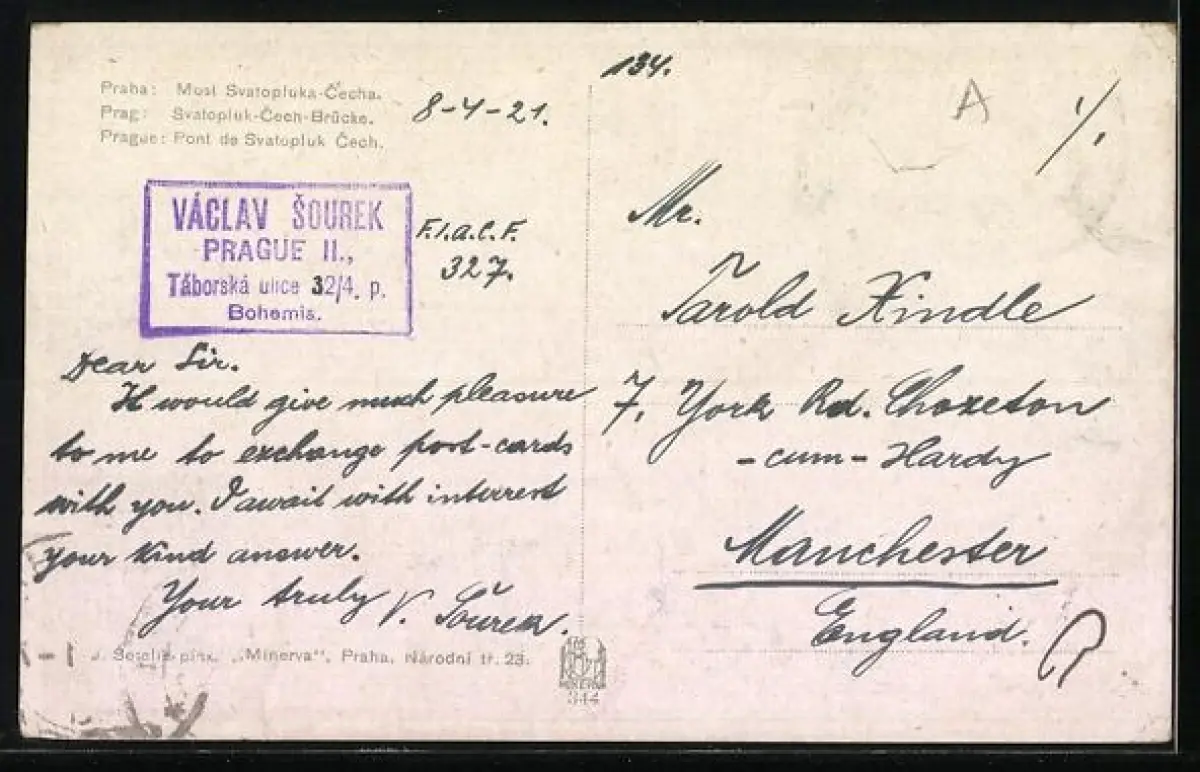 134.
A
1/.
Praha: Most Svatopluka-Čecha.
Prag: Svatopluk-Čech-Brücke.
Prague: Pont de Svatopluk Čech.
8-4-21.
VÁCLAV ŠOUREK
PRAGUE II.,
Táborská ulice 32/4. p.
Bohemia.
F.I.A.C.F.
327.
Dear Sir.
It would give much pleasure
to me to exchange post-cards
with you. I await with interrest
your kind answer.
Your truly V. Šourek.
Mr.
Harold Kindle
7, York Rd. Choreton
-cum-Hardy
Manchester
England.
J. pinx. „Minerva", Praha, Národní tř. 23.
MINERVA
344